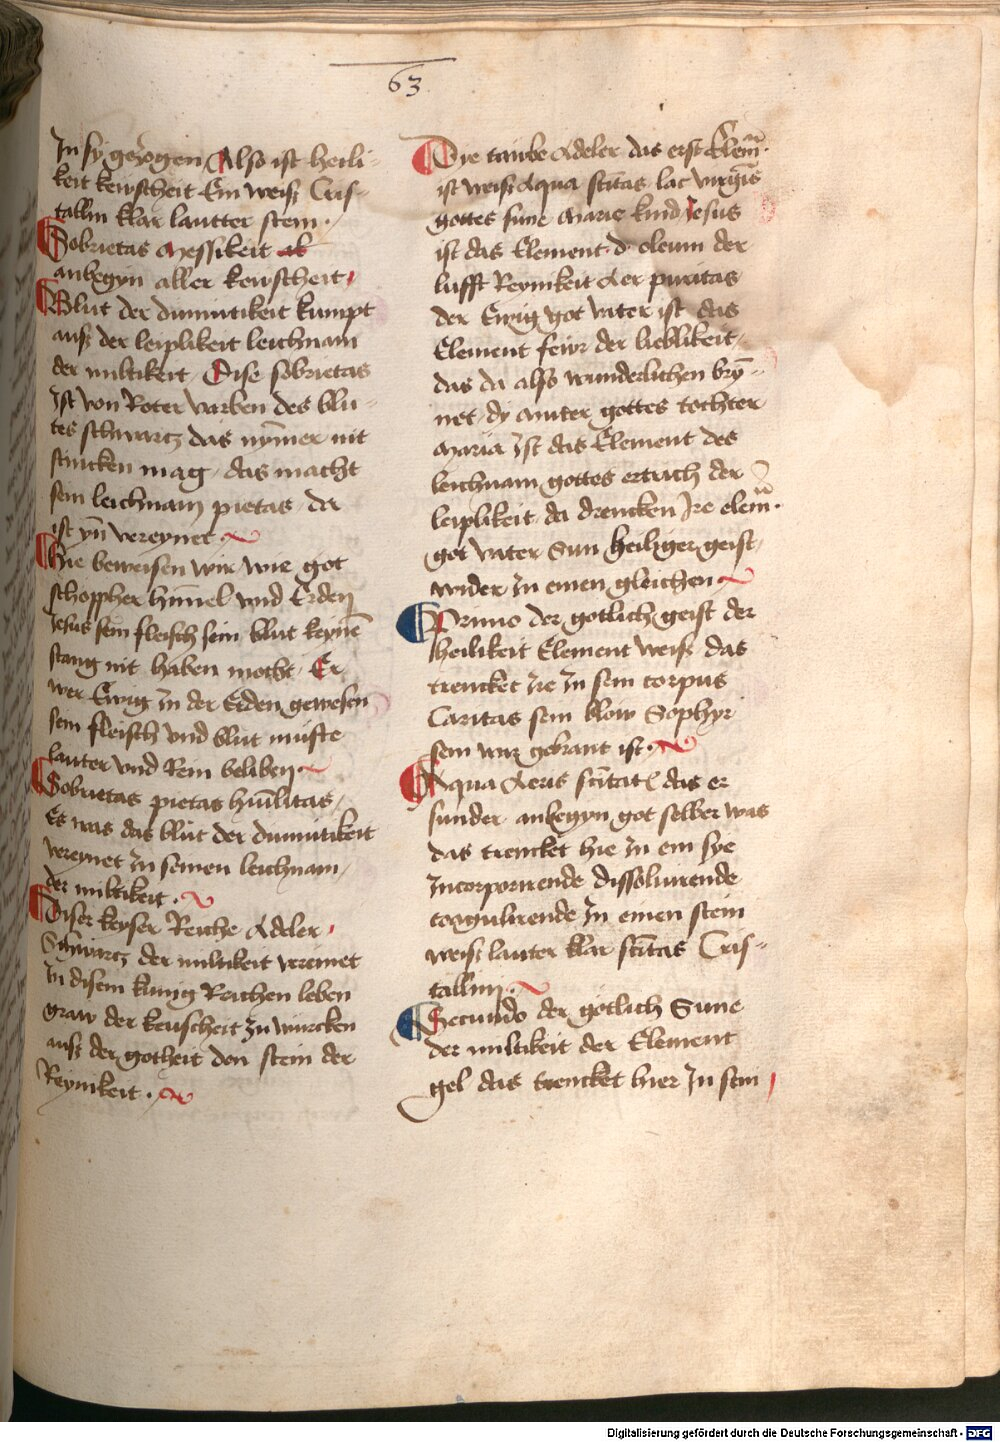 63
In sy gezogen Also ist heili-
keit kewscheit Ein weiss Cris-
tallin klar lautter stein.
Sobrietas Messikeit ab
anbegyn aller kewscheit
Blut der diemutikeit kumpt
auss der leiplikeit leichnam
der miltikeit. Dise sobrietas
Ist von Roter varben des blu-
tes schwartz das nymer nit
stincken mag. das macht
sein leichnam pietas. der
ist yn̄ vereynet
Hie beweisen wir wie got
schoppher himel vnd Erden
Jesus sein fleisch sein blut keynē
stang nit haben mocht. Er
wer Ewig In der Erden gewesen
sein fleisch vnd blut muste
lauter vnd Rein beliben
Sobrietas pietas humilitas,
Es was das blut der diemutikeit
vereynet In seinen leichnam,
der miltikeit.
Diser keyser Reiche Adeler,
Schwartz der miltikeit vereinet
In disem kunig Reichen leben
graw der keuscheit zu wurcken
auss der gotheit den stein der
Reynikeit.
Dye taube Adeler das erst Elem̄.
ist weiss Aqua scitas lac virgis
gottes sune Marie kind Jesus
ist das Element d oleum der
lufft Reynikeit Aer puritas
der Ewig got vater ist das
Element fewr der lieblikeit,
das da also wunderlichen bry̅-
net. dy muter gottes tochter
Maria Ist das Element des
leichnam gottes ertrich der
leiplikeit. da drencken Ire elem̄.
got vater Sun heiliger geist,
wider In einen gleichen
Primo der gotlich geist der
heilikeit Element weiss das
trencket Je In sein corpus
Caritas sein blow Sophyr
sein wir gebrant ist.
Aqua Aeris scitatz das er
sunder anbegyn got selber was
das trencket hie In ein sye
Incorporirende dissoluirende
coagulirende In einen stein
weiss lauter klar scitas Cris-
tallin.
Secundo der gotlich Sune
der miltikeit der Element
gel das trencket hier In sein
Digitalisierung gefördert durch die Deutsche Forschungsgemeinschaft - DFG